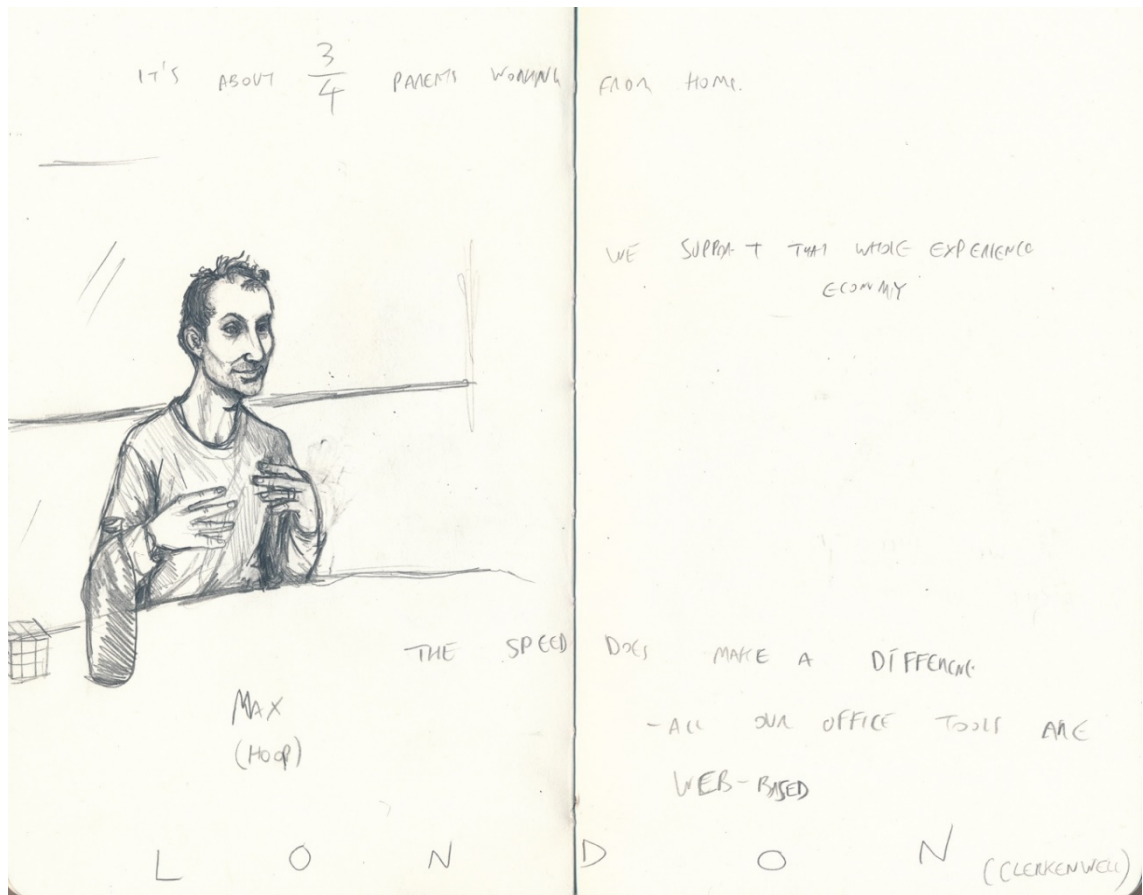 IT'S ABOUT 3/4 PARENTS WORKING FROM HOME.
WE SUPPORT THAT WHOLE EXPERIENCE
ECONOMY
THE SPEED DOES MAKE A DIFFERENCE
-ALL OUR OFFICE TOOLS ARE
WEB-BASED
MAX
(HOOP)
LONDON (CLERKENWELL)